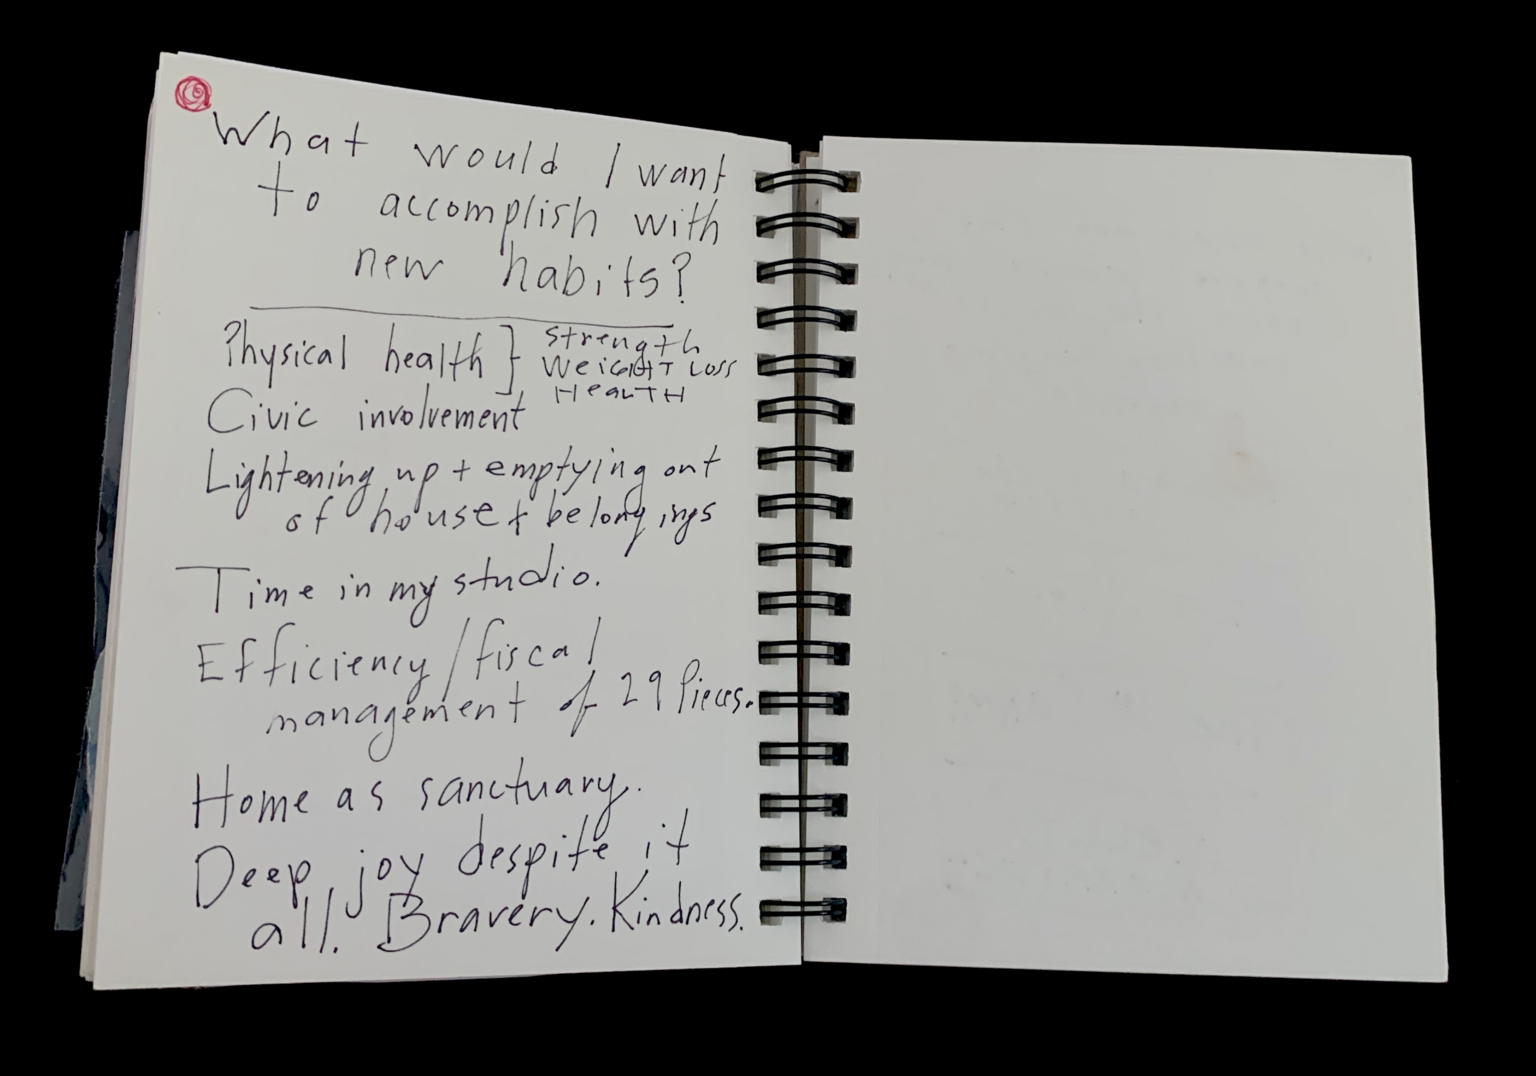 What would I want
to accomplish with
new habits?
Physical health } Strength
Weight Loss
Health
Civic involvement
Lightening up + emptying out
of house + belongings
Time in my studio.
Efficiency / fiscal
management of 29 Pieces.
Home as sanctuary.
Deep joy despite it
all. Bravery. Kindness.